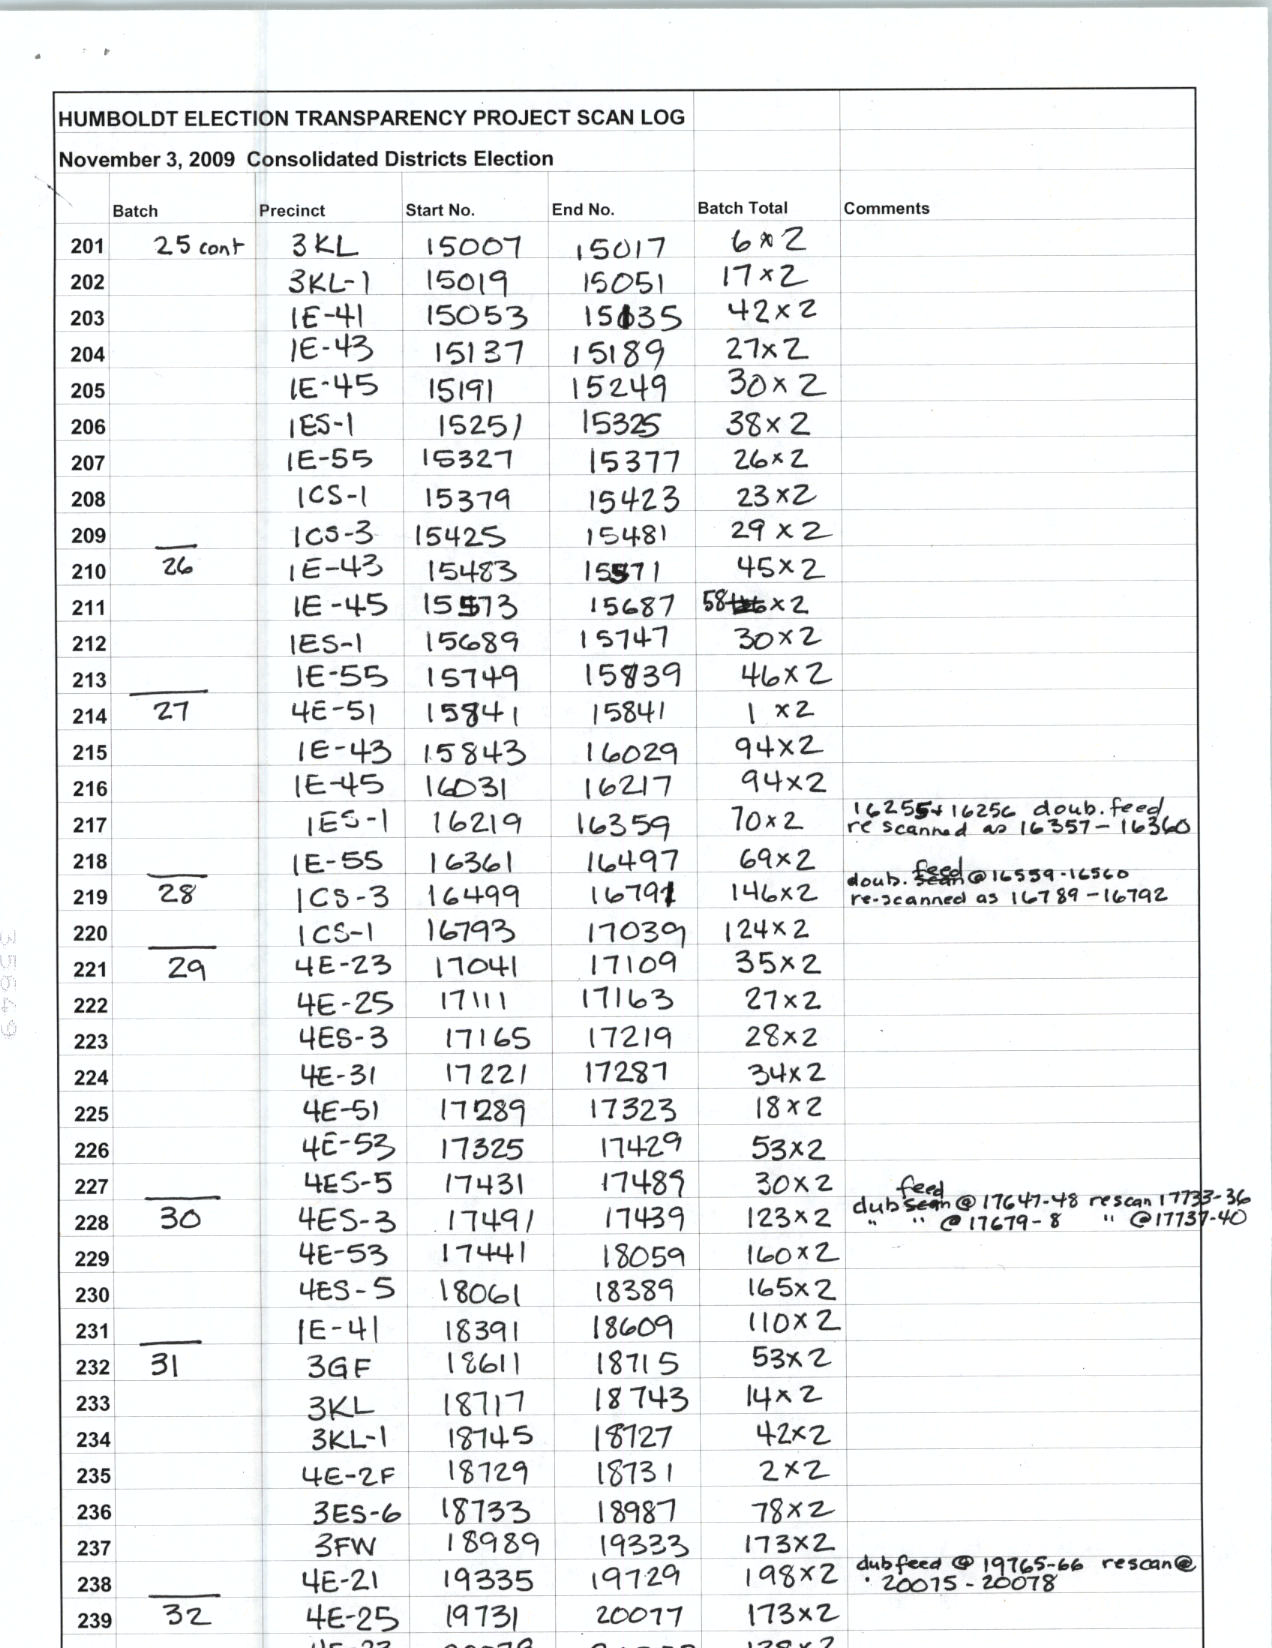 HUMBOLDT ELECTION TRANSPARENCY PROJECT SCAN LOG
November 3, 2009 Consolidated Districts Election
Batch Precinct Start No. End No. Batch Total Comments
201 25 cont 3KL 15007 15017 6x2
202 3KL-1 15019 15051 17x2
203 1E-41 15053 15135 42x2
204 1E-43 15137 15189 27x2
205 1E-45 15191 15249 30x2
206 1ES-1 15251 15325 38x2
207 1E-55 15327 15377 26x2
208 1CS-1 15379 15423 23x2
209 1CS-3 15425 15481 29x2
210 26 1E-43 15483 15571 45x2
211 1E-45 15573 15687 58x2
212 1ES-1 15689 15747 30x2
213 1E-55 15749 15839 46x2
214 27 4E-51 15841 15841 1 x2
215 1E-43 15843 16029 94x2
216 1E-45 16031 16217 94x2
217 1ES-1 16219 16359 70x2 16255+16256 doub. feed
re scanned as 16357-16360
218 1E-55 16361 16497 69x2
219 28 1CS-3 16499 16791 146x2 doub. scan feed @ 16559-16560
re-scanned as 16789-16792
220 1CS-1 16793 17039 124x2
221 29 4E-23 17041 17109 35x2
222 4E-25 17111 17163 27x2
223 4ES-3 17165 17219 28x2
224 4E-31 17221 17287 34x2
225 4E-51 17289 17323 18x2
226 4E-53 17325 17429 53x2
227 4ES-5 17431 17489 30x2
228 30 4ES-3 17491 17439 123x2 dub scan feed @ 17647-48 rescan 17733-36
" " @ 17679-8 " @17737-40
229 4E-53 17441 18059 160x2
230 4ES-5 18061 18389 165x2
231 1E-41 18391 18609 110x2
232 31 3GF 18611 18715 53x2
233 3KL 18717 18743 14x2
234 3KL-1 18745 18727 42x2
235 4E-2F 18729 18731 2x2
236 3ES-6 18733 18987 78x2
237 3FW 18989 19333 173x2
238 4E-21 19335 19729 198x2 dub feed @ 19765-66 rescan@
20075-20078
239 32 4E-25 19731 20077 173x2